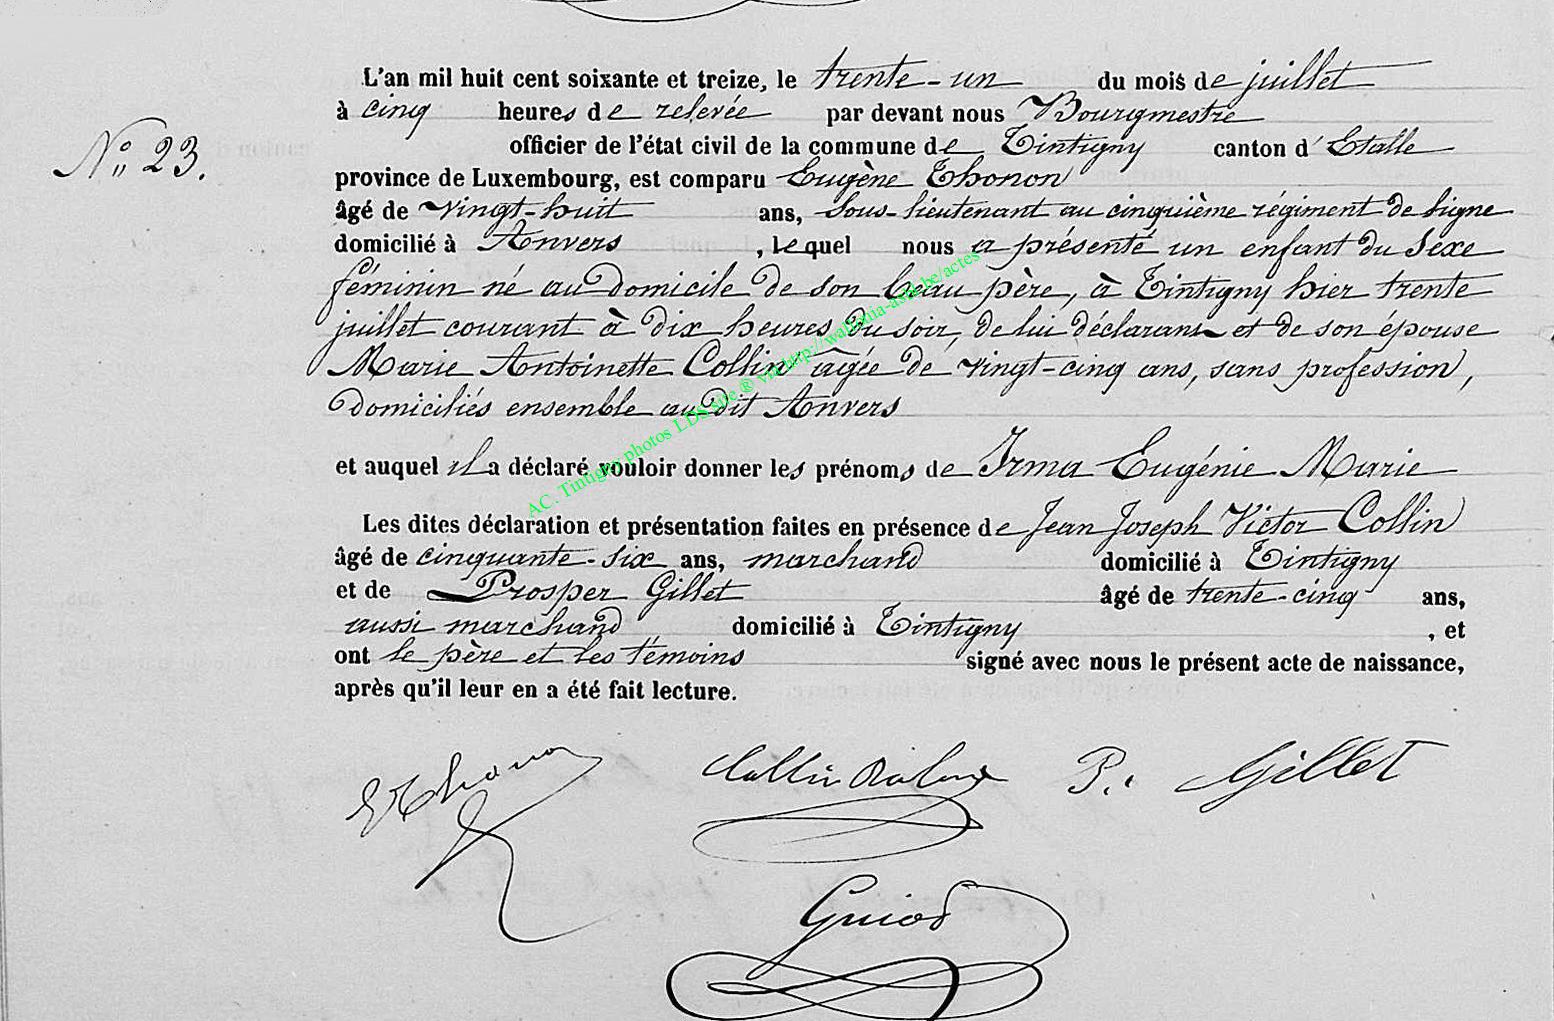 L'an mil huit cent soixante et treize, le trente-un du mois de juillet
à cinq heures de relevée par devant nous Bourgmestre
officier de l'état civil de la commune de Tintigny canton d'Etalle
N° 23.
province de Luxembourg, est comparu Eugène Thonon
âgé de vingt-huit ans, sous-lieutenant au cinquième régiment de ligne
domicilié à Anvers, lequel nous a présenté un enfant du sexe
féminin né au domicile de son beau père, à Tintigny hier trente
juillet courant à dix heures du soir, de lui déclarant et de son épouse
Marie Antoinette Collin âgée de vingt-cinq ans, sans profession,
domiciliés ensemble au dit Anvers
et auquel il a déclaré vouloir donner les prénoms de Irma Eugénie Marie
Les dites déclaration et présentation faites en présence de Jean Joseph Victor Collin
âgé de cinquante-six ans, marchand domicilié à Tintigny
et de Prosper Gillet âgé de trente-cinq ans,
aussi marchand domicilié à Tintigny, et
ont le père et les témoins signé avec nous le présent acte de naissance,
après qu'il leur en a été fait lecture.
EThonon Collin P. Gillet
Guiod
AC. Tintigny photos LDS site ® via http://wallonia-asbl.be/actes